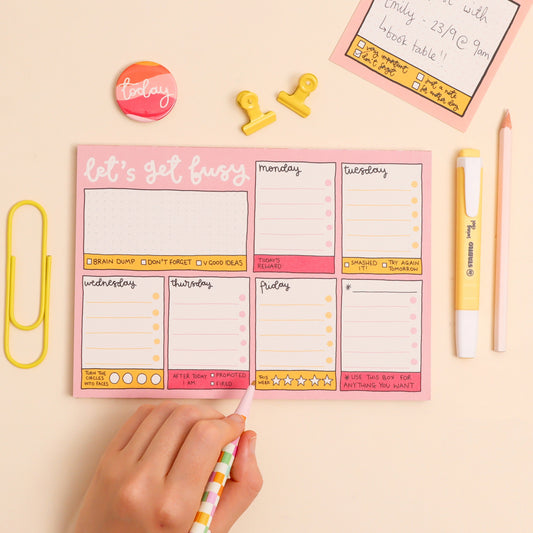 st with
Emily - 23/9 @ 9am
book table!!
very important
don't forget
just a note
for another day
today
let's get busy
BRAIN DUMP DON'T FORGET V GOOD IDEAS
monday
TODAY'S
REWARD
tuesday
SMASHED
IT!
TRY AGAIN
TOMORROW
wednesday
TURN THE
CIRCLES
INTO FACES
thursday
AFTER TODAY
I AM:
PROMOTED
FIRED
friday
THIS
WEEK
*
* USE THIS BOX FOR
ANYTHING YOU WANT
STABILO